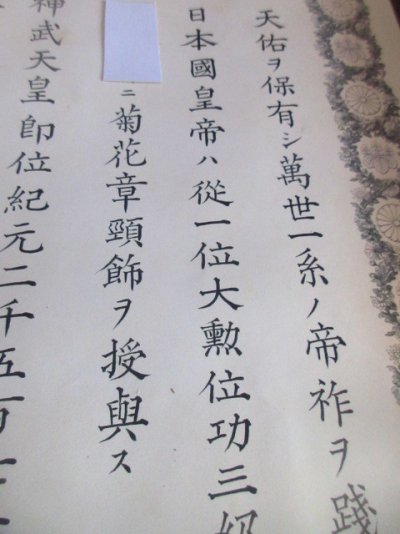 天佑ヲ保有シ萬世一系ノ帝祚ヲ踐
日本國皇帝ハ從一位大勲位功三級
ニ菊花章頸飾ヲ授與ス
神武天皇即位紀元二千五百